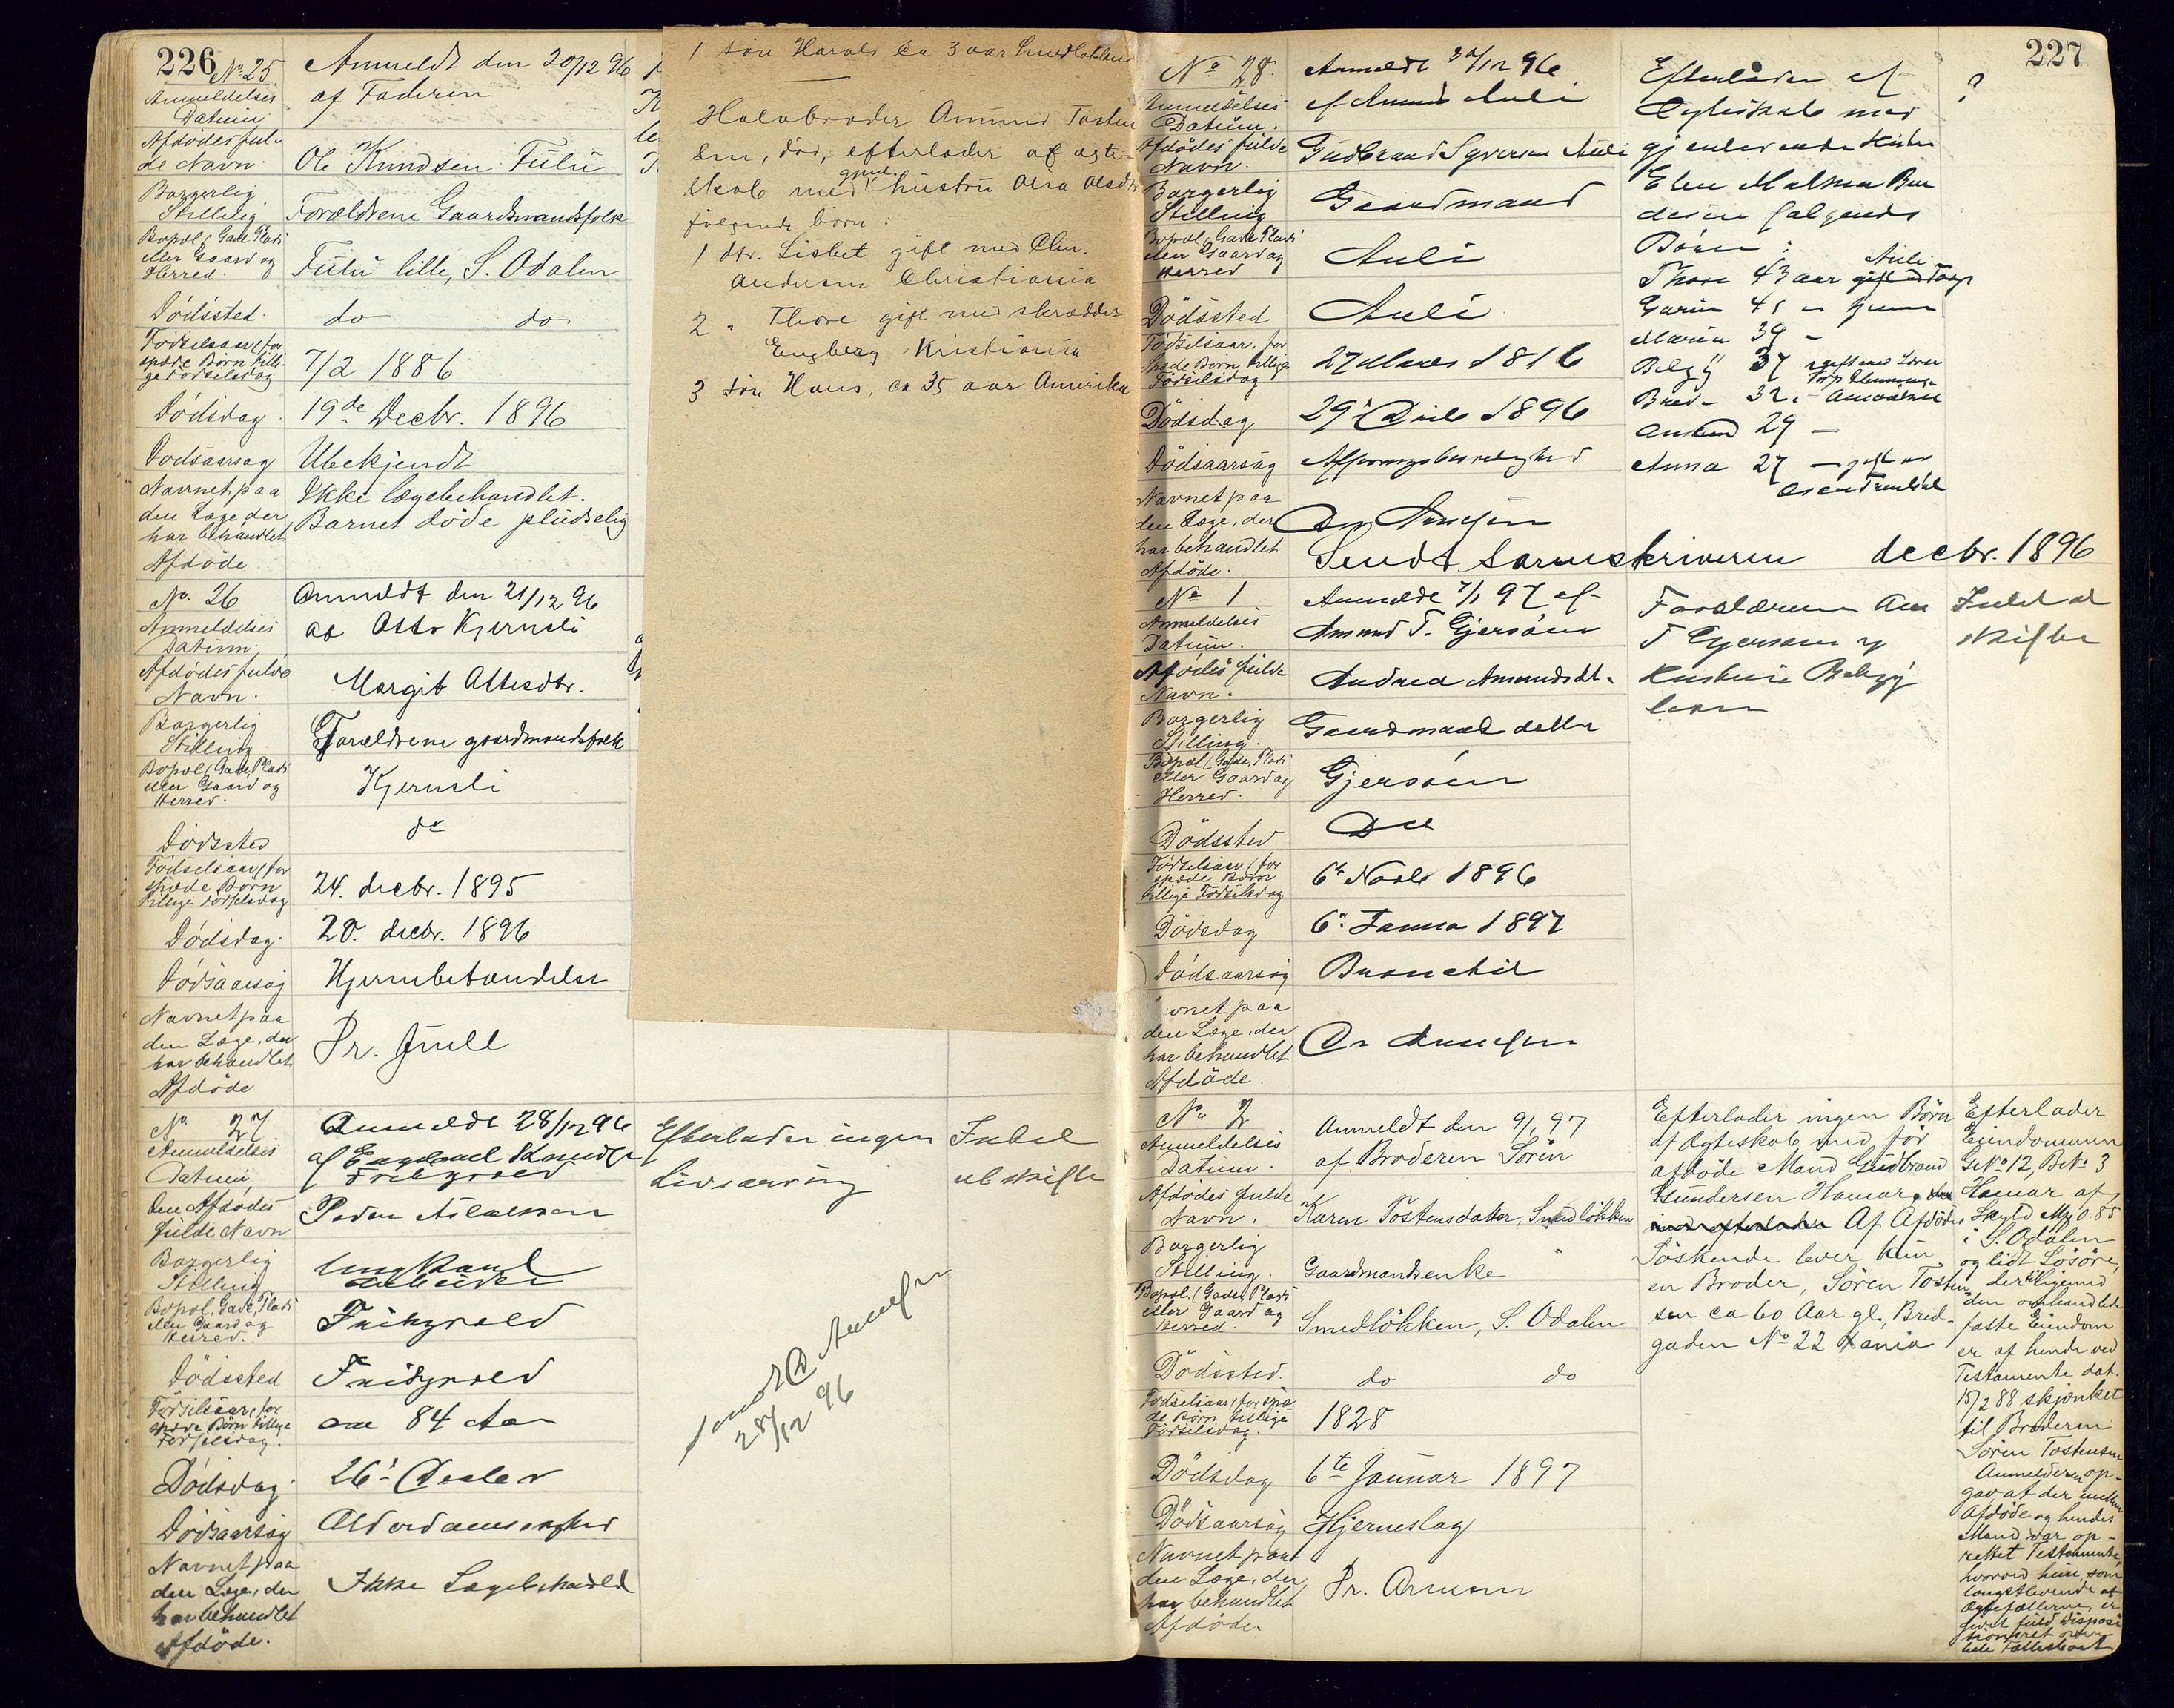 226
No 25
Anmeldt den 20/12 96
Anmeldelses
Datum
af Faderen
Afdödes ful-
de Navn
Ole Knudsen Fulu
Borgerlig
Stilling
Forældrene Gaardmandsfolk
Bopæl, Gade Plads
eller Gaard og
Herred.
Fulu lille, S. Odalen
Dödssted.
do do
Födselsaar, for
spæde Börn tilli-
ge Födselsdag
7/2 1886
Dödsdag.
19de Decbr. 1896
Dödsaarsag
Ubekjendt
Navnet paa
den Læge der
har behandlet
Afdöde
Ikke lægebehandlet.
Barnet döde pludselig
No. 26
Anmeldt den 21/12 96
Anmeldelses
Datum.
af Otto Kjernsli
Afdödes fulde
Navn.
Margit Ottesdtr.
Borgerlig
Stilling
Forældrene gaardmandsfolk
Bopæl (Gade, Plads
eller Gaard og
Herred.
Kjernsli
Dödssted
do
Födselsaar, for
spæde Börn
tillige Födselsdag
24. decbr. 1895
Dödsdag.
20. decbr. 1896
Dödsaarsag
Hjernebetændelse
Navnet paa
den Læge, der
har behandlet
Afdöde
Dr. Juell
No. 27
Anmeldt 28/12 96
Anmeldelses
Datum
af Knudsen
Den Afdödes
fulde Navn
Peder
Borgerlig
Stilling
Ungkarl
Bopæl, Gade, Plads
eller Gaard og
Herred.
Dödssted
Födselsaar, for
spæde Börn tillige
Födselsdag.
84 Aar
Dödsdag.
26' Decbr
Dödsaarsag
Alderdomssvaghed
Navnet paa
den Læge, der
har behandlet
Afdöde.
Ikke Lægebehandld
Efterlader ingen
Livsarving
Intet
at skifte
28/12 96
1 sön Harald ca 3 aar Smedløkken
Halvbroder Amund Tosten
sen, död, efterlader af ægte-
skab med gjenl. hustru Olea Olsdtr.
følgende börn:
1 dtr. Lisbet gift med Chr.
Andersen Christiania
2 " Thore gift med skrædder
Engberg Kristiania
3 sön Hans, ca 35 aar Amerika
227
No 28.
Anmeldt 30/12 96
Anmeldelses
Datum.
af Amund Auli
Afdödes fulde
Navn.
Gudbrand Syversen Auli
Borgerlig
Stilling
Gaardmand
Bopæl, Gade Plads
eller Gaard og
Herred
Auli
Dödssted
Auli
Födselsaar, for
spæde Börn tillige
Födselsdag
27 Mars 1816
Dödsdag
29' Decbr 1896
Dödsaarsag
Navnet paa
den Læge, der
har behandlet
Afdöde.
Efterlader af
Ægteskab med
gjenlevende Hustru
følgende
Börn:
Thore 43 aar Auli
Karen 41
Maren 39 -
37 gift med
32 -
Amund 29 -
Anna 27 - gift
?
Sendt Sorenskriveren decbr. 1896
No 1
Anmeldt 7/1 97 af
Anmeldelses
Datum.
Amund T. Gjersöen
Afdödes fulde
Navn.
Andrea Amundsdt.
Borgerlig
Stilling.
Gaardmands datter
Bopæl (Gade, Plads
eller Gaard og
Herred.
Gjersöen
Dödssted
Do
Födselsaar, for
spæde Börn
tillige Födselsdag
6' Novbr 1896
Dödsdag
6' Januar 1897
Dödsaarsag
Bronchit
den Læge, der
har behandlet
Afdöde.
Forældrene Am
T Gjersöen og
Hustru
lever
Intet at
skifte
No 2
Anmeldt den 9/1 97
Anmeldelses
Datum.
af Broderen Sören
Afdödes fulde
Navn.
Karen Tostensdatter, Smedlökken
Borgerlig
Stilling.
Gaardmandsenke
Bopæl, (Gade, Plads
eller Gaard og
Herred.
Smedlökken, S. Odalen
Dödssted.
do do
Födselsaar, for spæ-
de Börn tillige
Födselsdag.
1828
Dödsdag
6te Januar 1897
Dödsaarsag
Hjerneslag
Navnet paa
den Læge, der
har behandlet
Afdöde
Dr. Arnesen
Efterlader ingen Börn
af Ægteskab med för
afdöde Mand Gudbrand
Gundersen Hamar.
Af Afdödes
Söskende lever kun
en Broder, Sören Tosten-
sen ca 60 Aar gl., Bred-
gaden No 22 Kania
Efterlader
Eiendommen
GNo 12, BNo 3
Hamar af
Skyld Mk 0.85
i S. Odalen
og lidt Lösöre,
der tilligemed
den omhandlede
faste Eiendom
er af hende ved
Testamente dat.
15/2 88 skjænket
til Broderen
Sören Tostensen
Anmelderen op-
gav at der mellem
Afdöde og hendes
Mand var op-
rettet Testamente,
hvorved hun, som
længstlevende af
Ægtefællerne, er
givet fuld Disposi-
tionsret over
hele Fællesboet